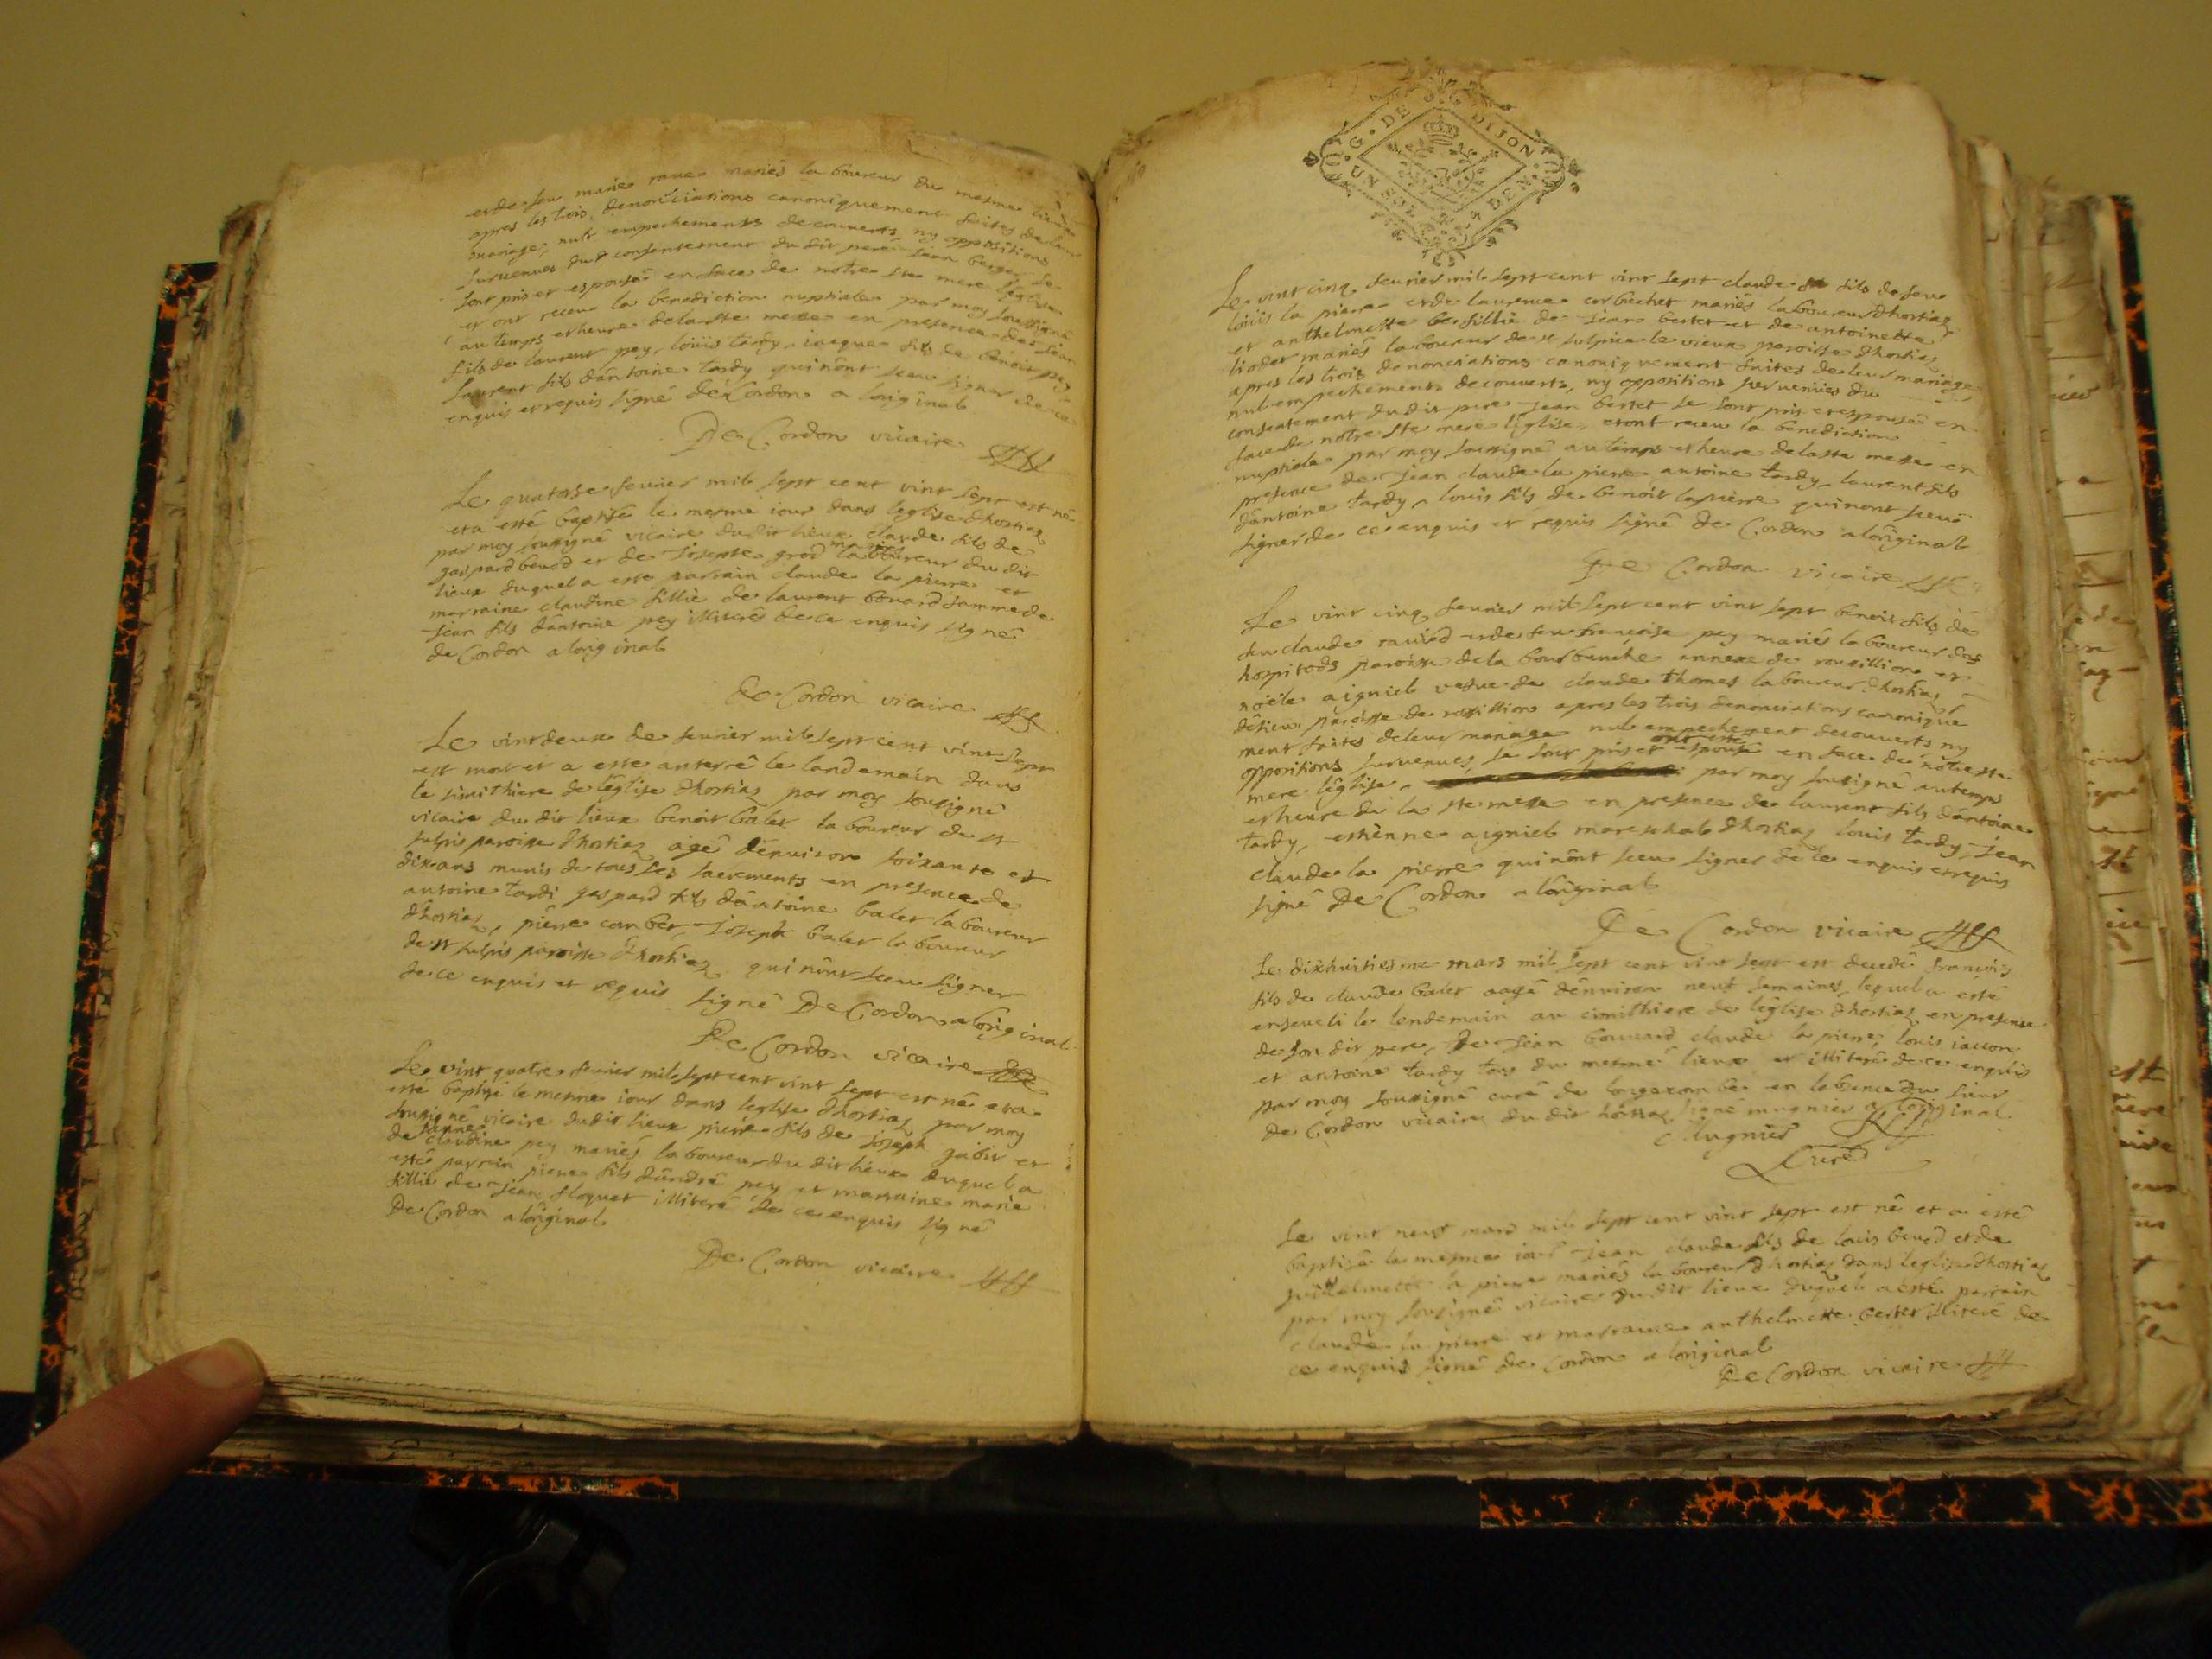 et de feu marie rauet mariés laboureur du mesme lieu
apres les trois denonciations canoniquement faites de leur
mariage, nuls empechements decouverts ny oppositions
survenues du consentement du dit pere jean berger se
sont pris et espousé en face de notre ste mere l'église
et ont receu la benediction nuptiale par moy soussigné
au temps et heure de la ste messe en presence de jean
fils de laurent pey, loüis tardy, jacque fils de benoit pey
laurent fils d'antoine tardy qui n'ont sceu signer de ce
enquis et requis signé de Cordon a loriginal
De Cordon vicaire
Le quatorse fevrier mil sept cent vint sept est né
et a esté baptisé le mesme iour dans leglise dhostiaz
par moy sousigné vicaire du dit lieux claude fils de
gaspard benod et de Josepte grod mariés laboureur du dit
lieux duquel a esté parrain claude la pierre et
marraine claudine fillie de laurent bouard famme de
jean fils dantoine pey illiterés de ce enquis signé
de Cordon a loriginal
De Cordon vicaire
Le vint deux de fevrier mil sept cent vint sept
est mort et a esté anterré le landemain dans
le simithiere de léglise dhostiaz par moy sousigné
vicaire du dit lieux benoit balet laboureur de st
sulpis paroisse dhostiaz agé d'environ soixante et
dix ans munis de tous les sacrements en presence de
antoine tardi gaspard fils dantoine balet laboureur
dhostiaz, pierre comber Joseph balet laboureur
de st sulpis paroisse dhostiaz qui nont sceu signer
de ce enquis et requis signé De Cordon a loriginal
De Cordon vicaire
Le vint quatre fevrier mil sept cent vint sept est né et a
esté baptisé le mesme iour dans leglise dhostiaz par moy
sousigné vicaire du dit lieux pierre fils de joseph jabit et
de janne claudine pey mariés laboureur du dit lieux duquel a
esté parrain pierre fils dandré pey et marraine marie
fillie de jean floquet illiteré de ce enquis signé
De Cordon a loriginal
De Cordon vicaire
G. DE DIJON
UN SOL 4 DEN.
Le vint cinq fevrier mil sept cent vint sept claude fils de feu
loüis la pierre et de laurence corbechet mariés laboureur dhostiaz
et anthelmette fillie de jean bertet et de antoinette
liodet mariés laboureur de st sulpice le vieux paroisse dhostiaz
apres les trois denonciations canoniquement faites de leur mariage
nul empechements decouverts, ny oppositions survenues du
consentement du dit pere jean bertet se sont pris et espousé en
face de notre ste mere l'église et ont receu la benediction
nuptiale par moy soussigné au temps et heure de la ste messe en
presence de jean claude la pierre antoine tardy, laurent fils
dantoine tardy, louis fils de benoit lapierre qui nont sceu
signer de ce enquis et requis signé de Cordon a loriginal
De Cordon vicaire
Le vint cinq fevrier mil sept cent vint sept benoit fils de
feu claude raviod et de feu francoise pey mariés laboureur des
hospitods paroisse de la bourbanche annexe de rousillion et
noële aigniel vefue de claude thomas laboureur dhostiaz
paroisse de rossillion apres les trois denonciations canonique
ment faites de leur mariage nul empechement decouverts ny
oppositions survenues, se sont pris et ont esté espousé en face de notre ste
mere léglise, par moy sousigné au temps
et heure de la ste messe en presence de laurent fils dantoine
tardy, esthienne aigniel mareschal dhostiaz louis tardy, jean
claude la pierre qui nont sceu signer de ce enquis et requis
signé De Cordon a loriginal
De Cordon vicaire
Le dixhuitiesme mars mil sept cent vint sept est decedé françois
fils de claude balet aagé denviron neuf semaines, lequel a esté
enseveli le lendemain au cimithiere de léglise dhostiaz en presense
de son dit pere, De jean bouvard claude la pierre, louis
et antoine tardy tous du mesme lieux et illiteré de ce enquis
par moy sousigné curé de longecombe en labsence du sieur
de Cordon vicaire du dit hostiaz signé mugnier a loriginal
Mugnier
Curé
Le vint neuf mars mil sept cent vint sept est né et a esté
baptisé le mesme iour jean claude fils de louis benod et de
guillelmette la pierre mariés laboureur dhostiaz dans leglise dhostiaz
par moy sousigné vicaire du dit lieux duquel a esté parrain
claude la pierre et marraine anthelmette bertet illiteré de
ce enquis signé de Cordon a loriginal
De Cordon vicaire